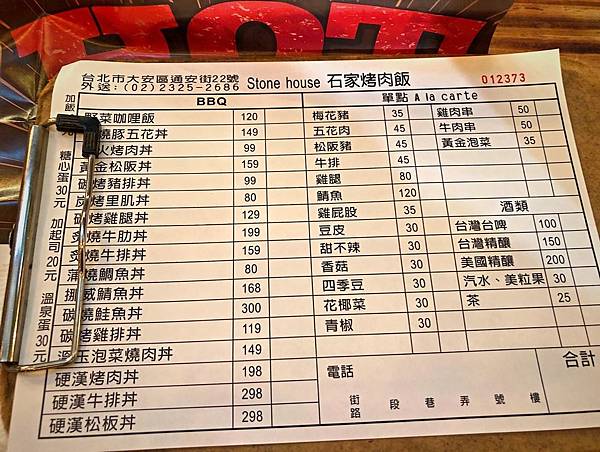 HOT
台北市大安區通安街22號
外送:(02)2325-2686 Stone house 石家烤肉飯 012373
BBQ
野菜咖哩飯 120
燒豚五花丼 149
火烤肉丼 99
黃金松阪丼 159
碳烤豬排丼 99
炭烤里肌丼 80
碳烤雞腿丼 129
炙燒牛肋丼 199
炙燒牛排丼 159
蒲燒鯛魚丼 80
挪威鯖魚丼 168
碳燒鮭魚丼 300
碳烤雞排丼 119
玉泡菜燒肉丼 149
硬漢烤肉丼 198
硬漢牛排丼 298
硬漢松板丼 298
單點 A la carte
梅花豬 35
五花肉 45
松阪豬 45
牛排 45
雞腿 80
鯖魚 120
雞屁股 35
豆皮 30
甜不辣 30
香菇 30
四季豆 30
花椰菜 30
青椒 30
雞肉串 50
牛肉串 50
黃金泡菜 35
酒類
台灣台啤 100
台灣精釀 150
美國精釀 200
汽水、美粒果 30
茶 25
合計
電話
街路 段 巷 弄 號 樓
加飯
元
糖心蛋30元
加起司20元
溫泉蛋30元